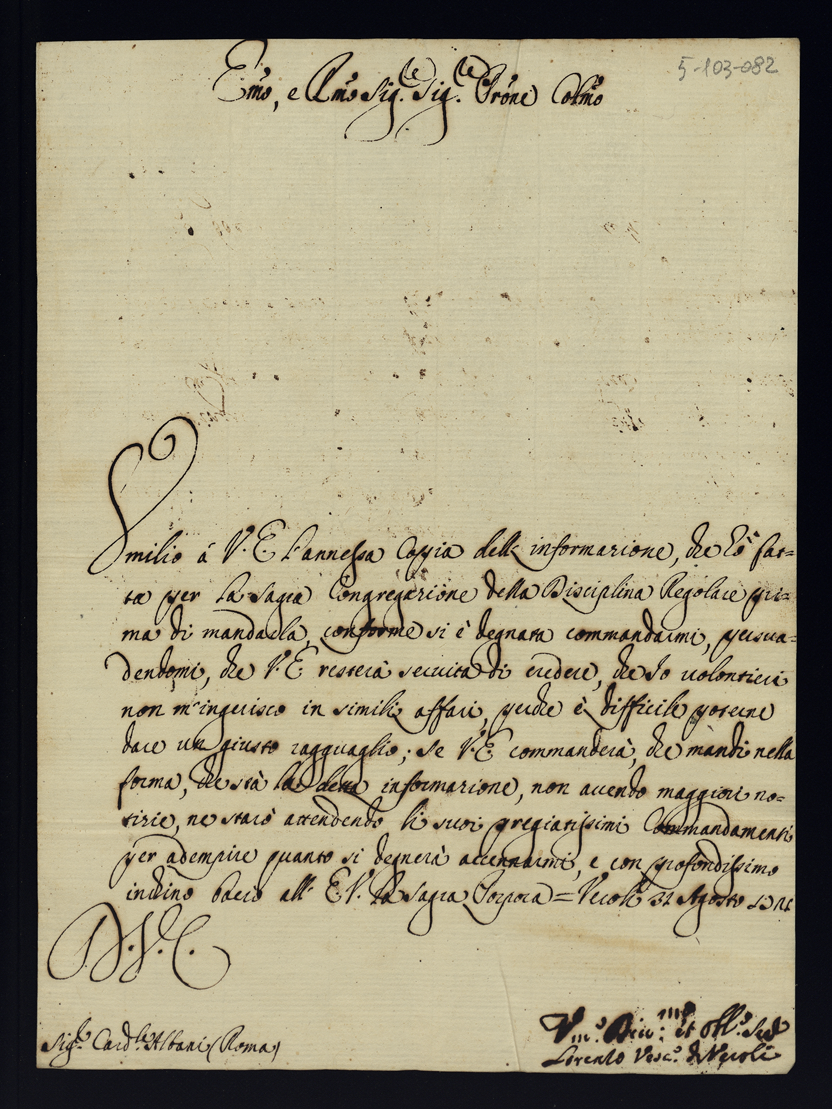 5-103-082
Emo, e Rmo Sig.re Sig.re Prone Colmo
Umilio á V. E. l'annessa Coppia dell' informazione, che hò fat=
ta per la Sagra Congregazione della Disciplina Regolare pri=
ma di mandarla, conforme si è degnata commandarmi, persua=
dendomi, che V. E. resterà servita di credere, che Io volontieri
non m'ingerisco in simili affari, perche è difficile poterne
dare un giusto ragguaglio; se V. E. commanderà, che mandi nella
forma, che stà la detta informazione, non avendo maggiori no=
tizie, ne starò attendendo li suoi pregiatissimi Commandamenti
per adempire quanto si degnerà accennarmi, e con profondissimo
inchino bacio all' E. V. la Sagra Porpora = Veroli 31 Agosto
D. V. E.
Sig.r Card.le Albani (Roma)
V.mo Div.mo et Obl.o
Lorenzo Vesc.o di Veroli